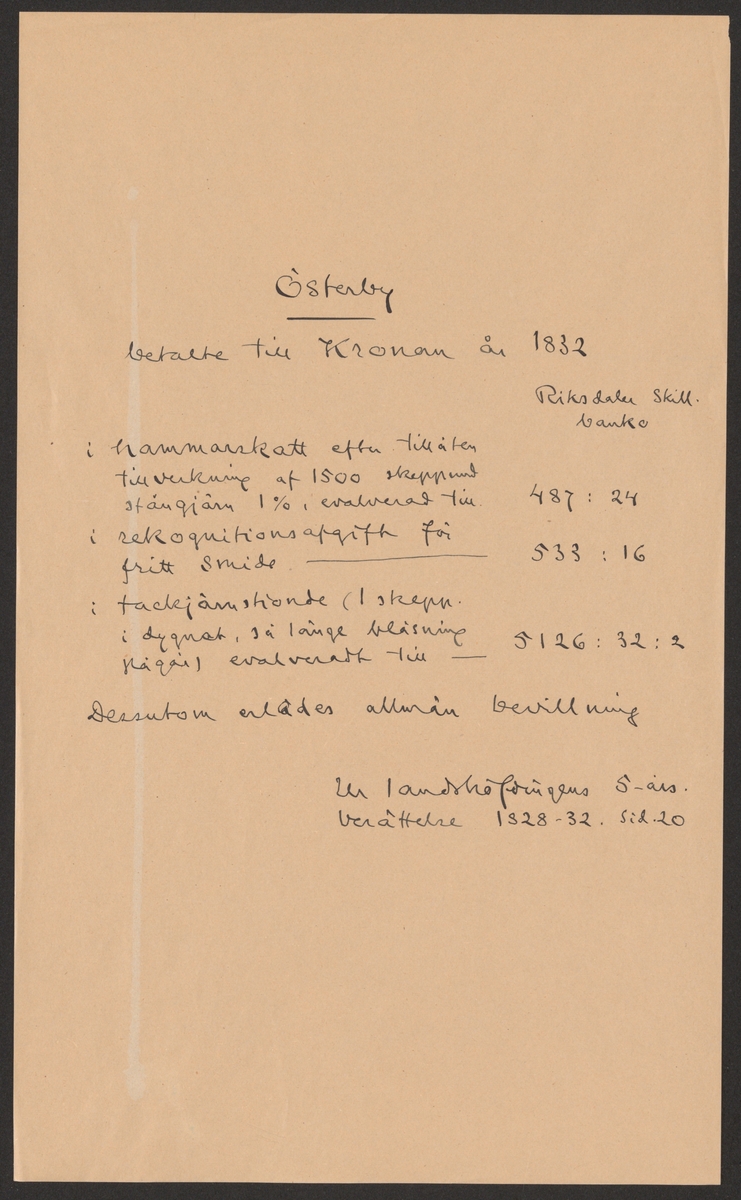 Österby
betalte till Kronan år 1832
Riksdaler Skill.
banko
i hammarskatt efter tillåten
tillverkning af 1500 skeppund
stångjärn 1%, evalverad till. 487 : 24
i rekognitionsafgift för
fritt smide. 533 : 16
i tackjärnstionde (1 skepp.
i dygnet, så länge blåsning
pågår) evalveradt till — 5126 : 32 : 2
Dessutom erlades allmän bevillning
Ur landshöfdingens 5-års.
berättelse 1828-32. Sid. 20